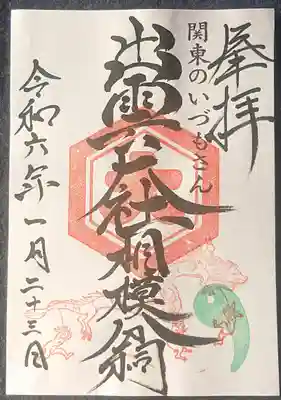 奉拝
関東のいづもさん
出雲大社相模分祠
令和六年一月二十三日